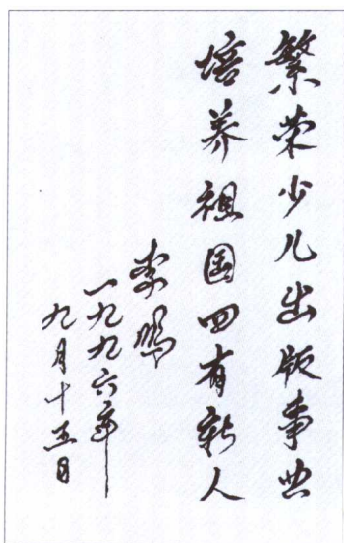 繁荣少儿出版事业
培养祖国四有新人
李鹏
一九九六年
九月十五日